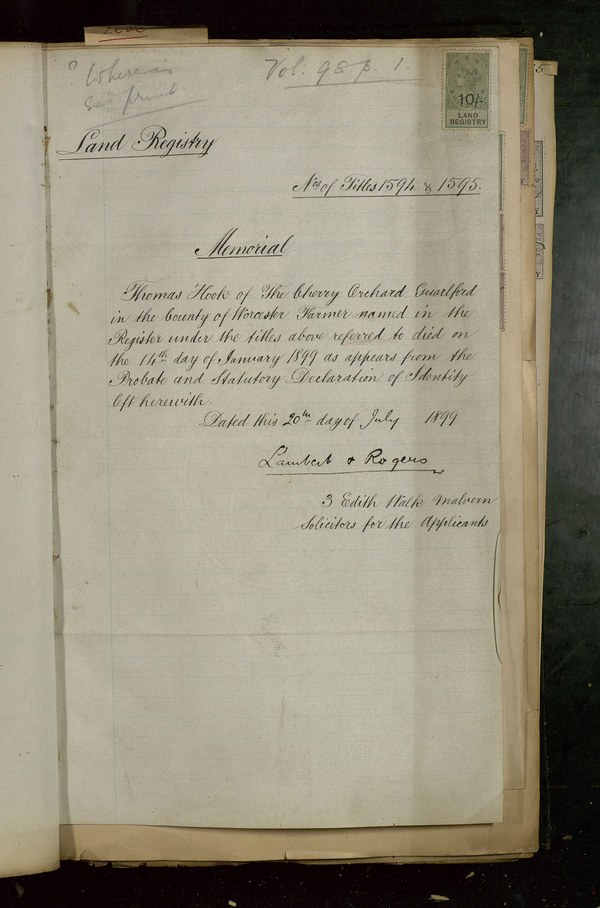 ? Where is
print
Vol: 98. p. 1.
10/-
LAND
REGISTRY
Land Registry
Nos of Titles 1594 & 1595.
Memorial
Thomas Hook of The Cherry Orchard Guarlford
in the County of Worcester Farmer named in the
Register under the titles above referred to died on
the 14th day of January 1899 as appears from the
Probate and Statutory Declaration of Identity
left herewith.
Dated this 20th day of July 1899
Lambert & Rogers
3 Edith Walk Malvern
Solicitors for the Applicants